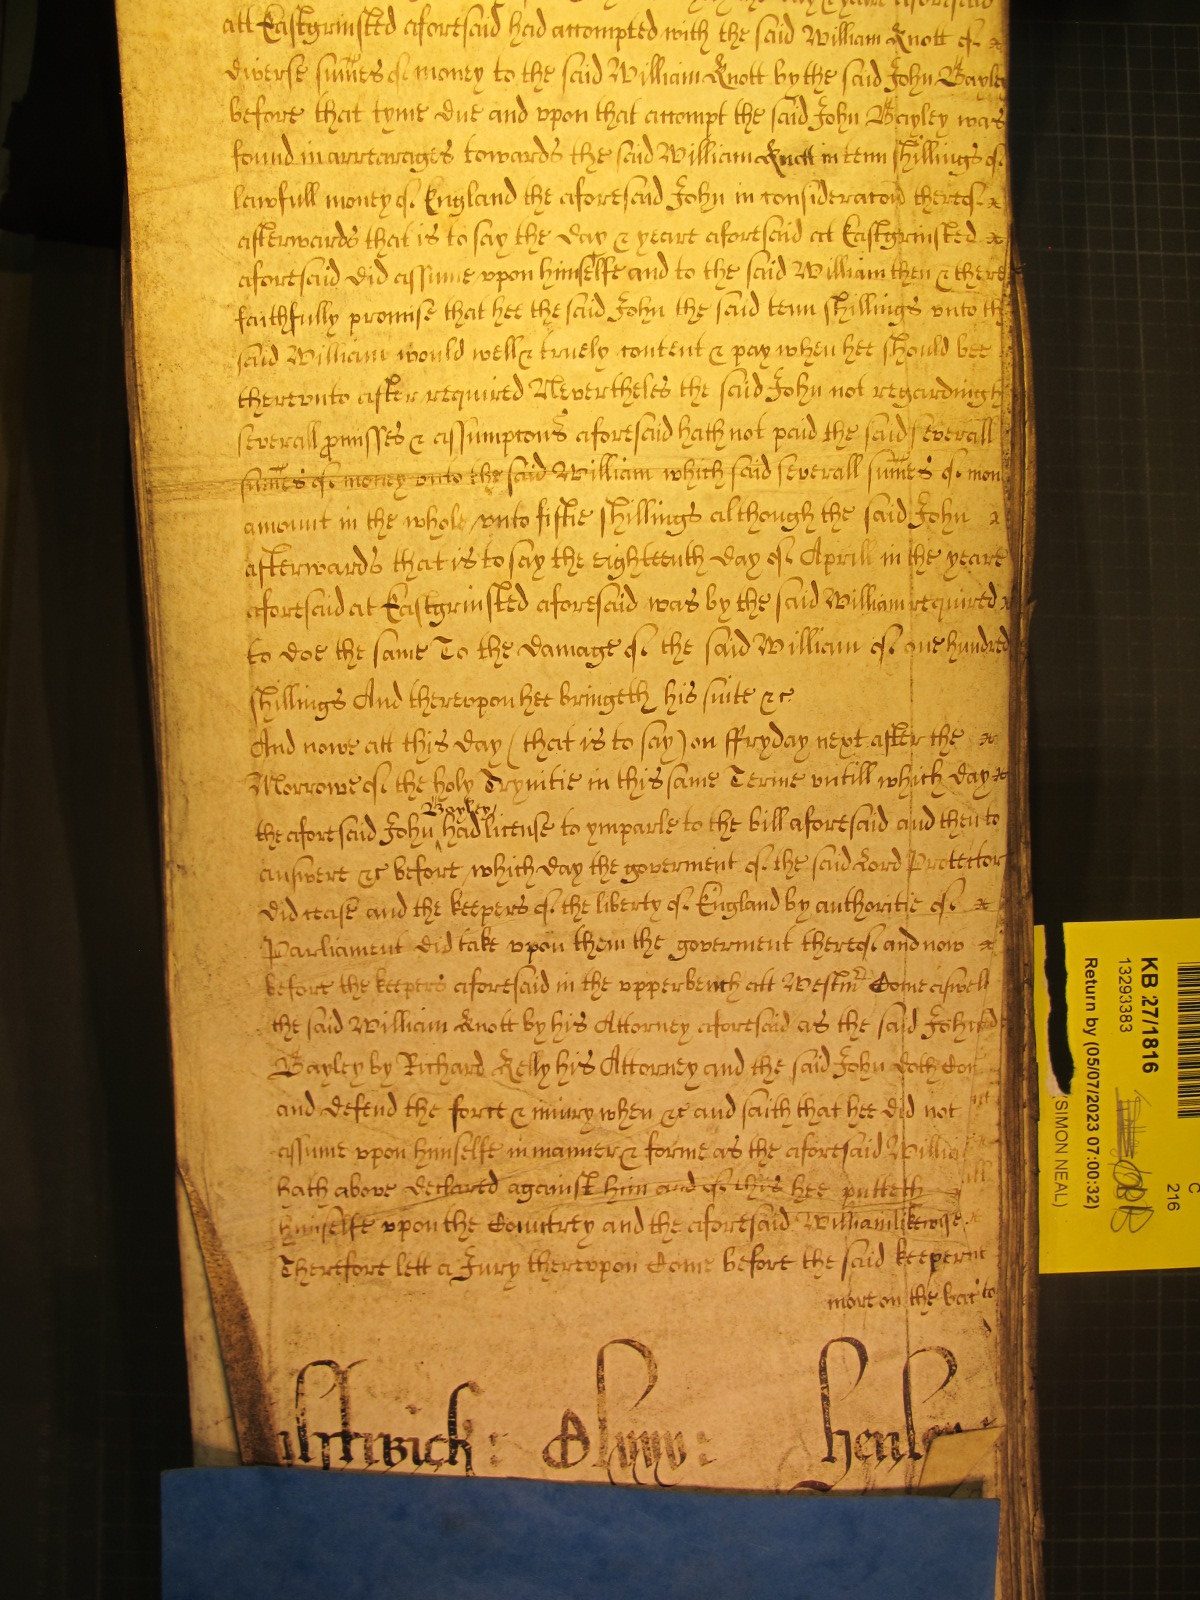 att Eastgrinsted aforesaid had accompted with the said William Knott of
diverse sumes of money to the said William Knott by the said John Bayley
before that tyme due and vpon that accompt the said John Bayley was
found in arrearages towards the said William Knott in tenn shillings of
lawfull money of England the aforesaid John in consideracon thereof
afterwards that is to say the day & yeare aforesaid at Eastgrinsted
aforesaid did assume vpon himselfe and to the said William then & there
faithfully promise that hee the said John the said tenn shillings vnto the
said William would well & truely content & pay when hee should bee
therevnto after required Nevertheles the said John not regarding
severall pmisses & assumptons aforesaid hath not paid the said severall
sumes of money vnto the said William which said severall sumes of mon
amount in the whole vnto fiftie shillings although the said John
afterwards that is to say the eighteenth day of Aprill in the yeare
aforesaid at Eastgrinsted aforesaid was by the said William required
to doe the same To the damage of the said William of one hundred
shillings And therevpon hee bringeth his suite &c
And nowe att this day (that is to say) on ffryday next after the
Morrowe of the holy Trynitie in this same Terme vntill which day
the aforesaid John Bayley had license to ymparle to the bill aforesaid and then to
answere &c before which day the goverment of the said Lord Protector
did cease and the keepers of the liberty of England by authoritie of
Parliament did take vpon them the goverment thereof and now
before the keepers aforesaid in the vpperbench att Westmr Come aswell
the said William Knott by his Attorney aforesaid as the said John
Bayley by Richard Kelly his Attorney and the said John doth Com
and defend the force & iniury when &c and saith that hee did not
assume vpon himselfe in manner & forme as the aforesaid Willia
hath above declared against him and of this hee putteth
himselfe vpon the Countrey and the aforesaid William likewise
Therefore lett a Jury therevpon Come before the said keepers
more on the bac to
KB 27/1816
13293383
Return by (05/07/2023 07:00:32)
SIMON NEAL)
C
216